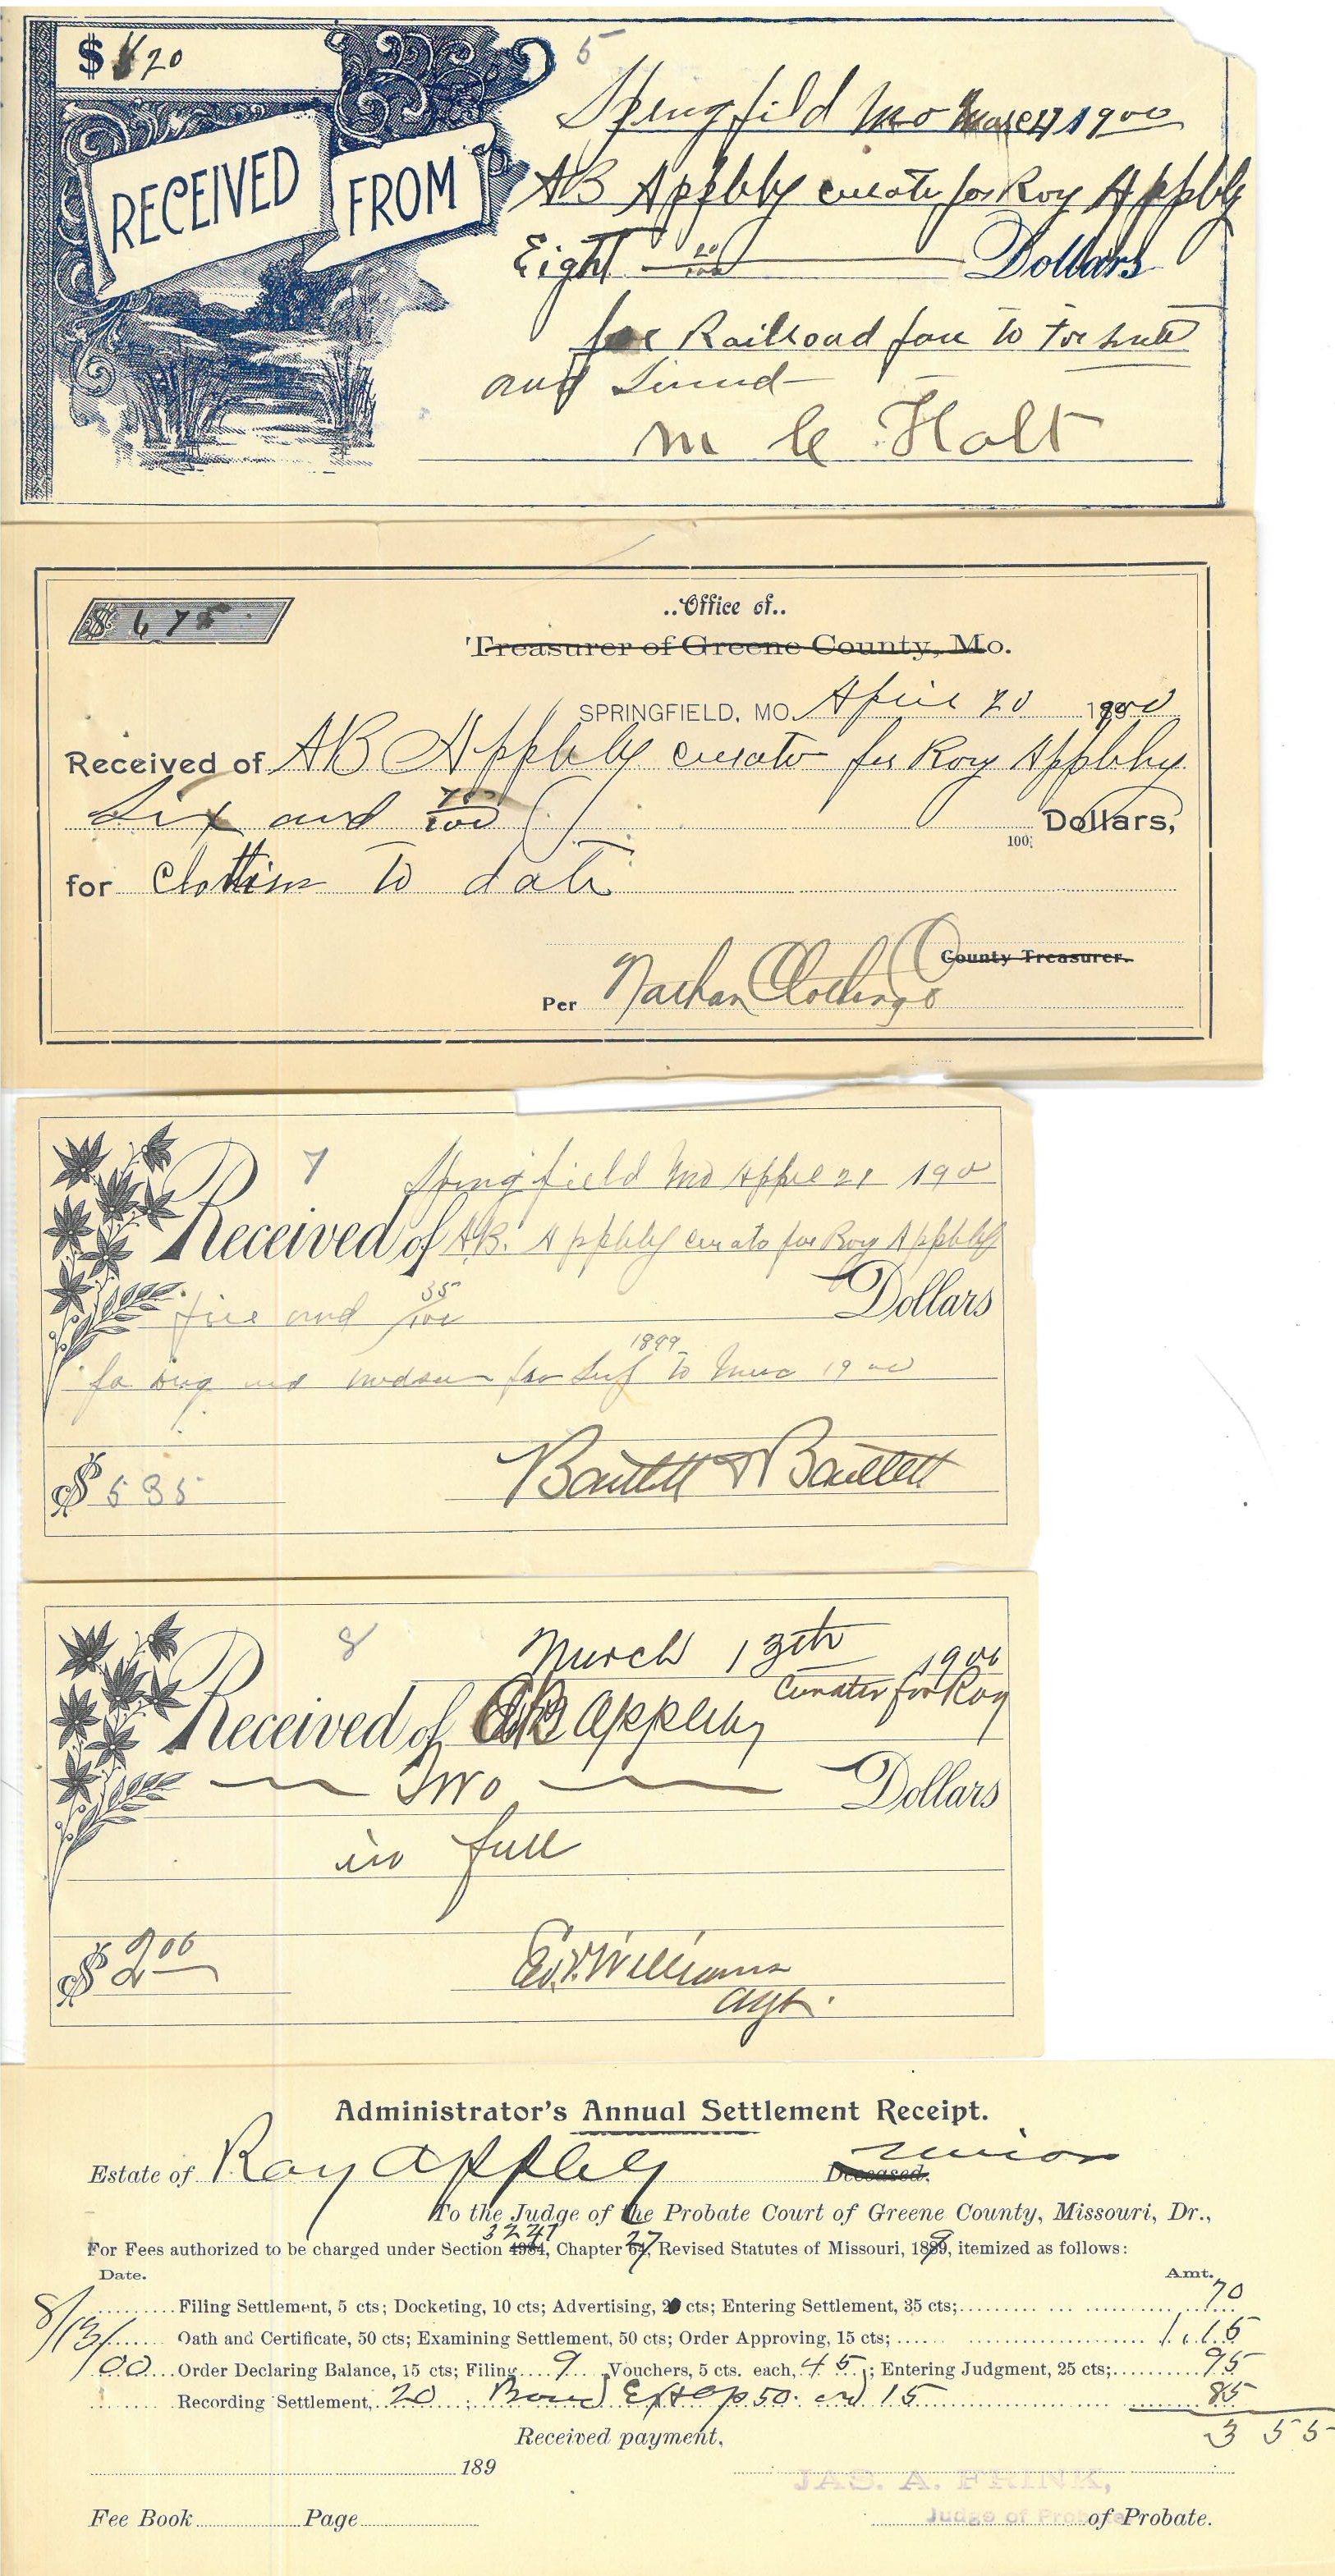 $ 8 20
5
Springfild Mo 1900
RECEIVED FROM
AB Appleby curato for Roy Appleby
Eight 20/100 Dollars
for Railroad fare to
and
M C Holt
$ 6 75
..Office of..
Treasurer of Greene County, Mo.
SPRINGFIELD, MO. April 20 1900
Received of AB Appleby curato for Roy Appleby
Six and 75/100 Dollars,
100
for Clothing to date
County Treasurer.
Per Nathan Clothing Co
7
Springfield Mo 21 1900
Received of A.B. Appleby curato for Roy Appleby
five and 35/100 Dollars
1899
and to 1900
$ 5 35
Bartlett & Bartlett
8
March 13th 1900
Curator for Roy
Received of AB Appleby
Two Dollars
in full
$ 2 00
Ed. V. Williams
Agt.
Administrator's Annual Settlement Receipt.
Estate of Roy Appleby Deceased. minor
To the Judge of the Probate Court of Greene County, Missouri, Dr.,
For Fees authorized to be charged under Section 4984, 3241 Chapter 64, 27 Revised Statutes of Missouri, 1899, itemized as follows:
Date. Amt.
Filing Settlement, 5 cts; Docketing, 10 cts; Advertising, 20 cts; Entering Settlement, 35 cts; 70
8/13/ Oath and Certificate, 50 cts; Examining Settlement, 50 cts; Order Approving, 15 cts; 1.15
/00 Order Declaring Balance, 15 cts; Filing 9 Vouchers, 5 cts. each, 45; Entering Judgment, 25 cts; 95
Recording Settlement, 20; Bond 50. and 15 85
3 55
Received payment,
189
JAS. A. FRINK,
Judge of Probate
Fee Book Page of Probate.